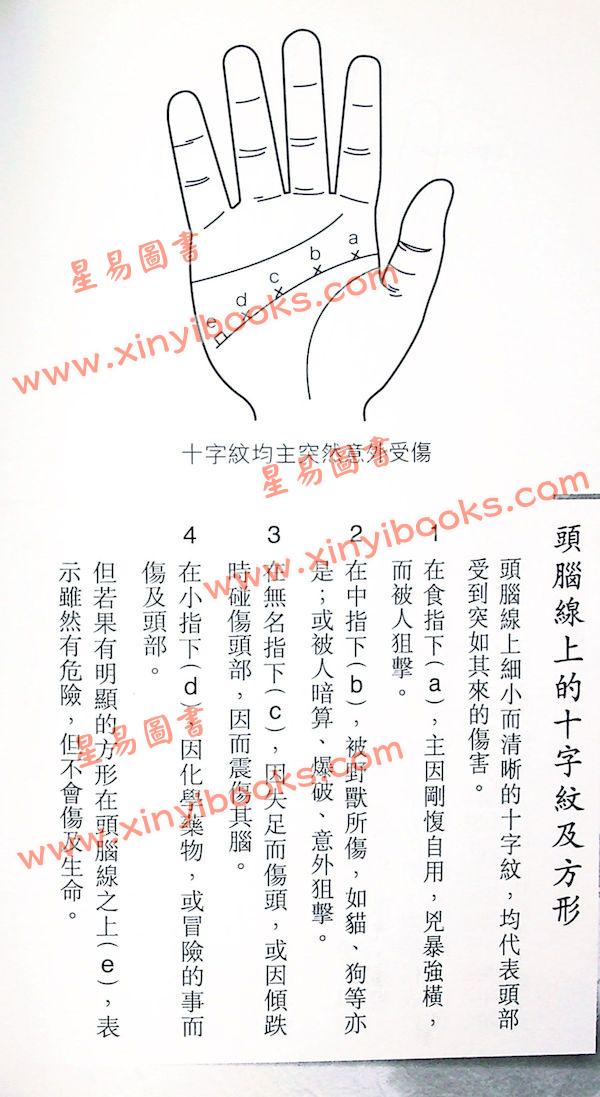 a
b
c
d
e
星易圖書
www.xinyibooks.com
十字紋均主突然意外受傷
星易圖書
www.xinyibooks.com
頭腦線上的十字紋及方形
頭腦線上細小而清晰的十字紋，均代表頭部
受到突如其來的傷害。
1 在食指下(a)，主因剛愎自用，兇暴強橫，
而被人狙擊。
2 在中指下(b)，被野獸所傷，如貓、狗等亦
是；或被人暗算、爆破、意外狙擊。
3 在無名指下(c)，因失足而傷頭，或因傾跌
時碰傷頭部，因而震傷其腦。
4 在小指下(d)，因化學藥物，或冒險的事而
傷及頭部。
但若果有明顯的方形在頭腦線之上(e)，表
示雖然有危險，但不會傷及生命。
星易圖書
www.xinyibooks.com